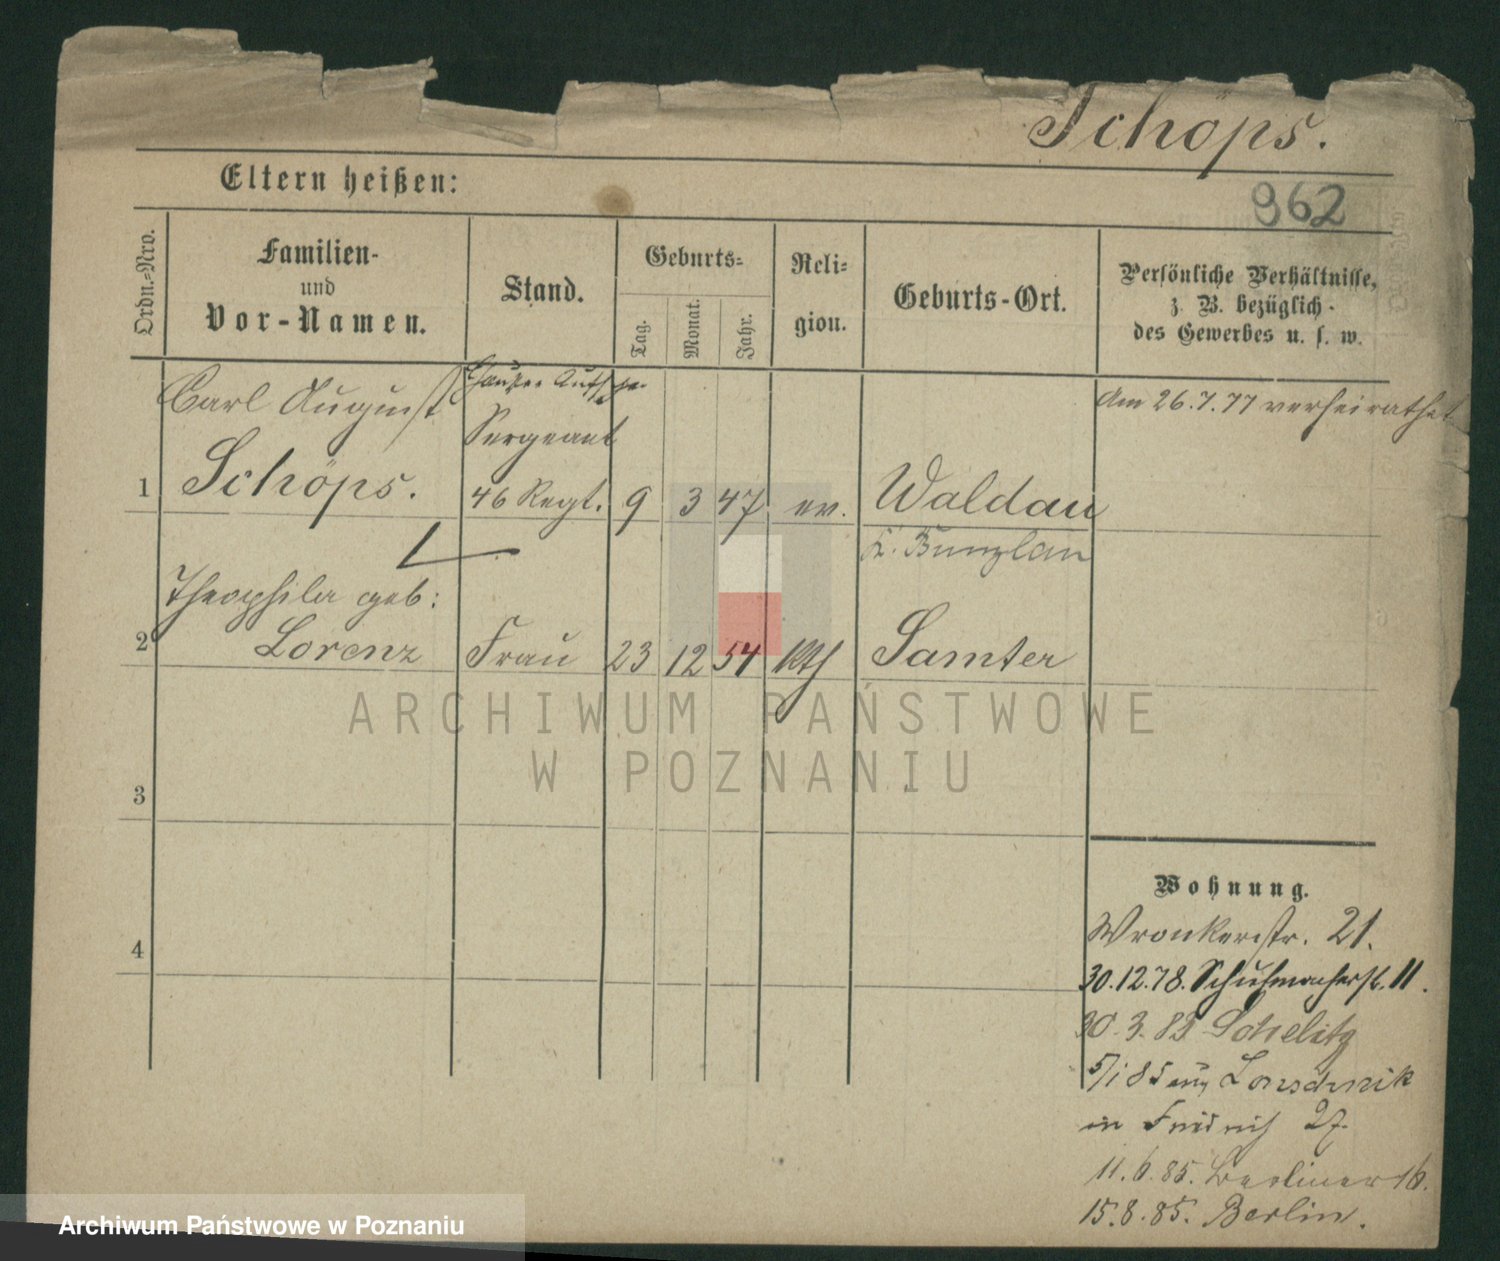 Schöps.
Eltern heißen:
962
Ordn.-Nro.
Familien-
und
Vor-Namen.
Stand.
Geburts-
Tag.
Monat.
Jahr.
Reli-
gion.
Geburts-Ort.
Persönliche Verhältnisse,
z. B. bezüglich
des Gewerbes u. s. w.
Carl August
Sergeant
Am 26.7.77 verheirathet
1 Schöps. 46 Regt. 9 3 47 ev. Waldau
Kr. Bunzlau
Theophila geb:
2 Lorenz Frau 23 12 54 kth Samter
ARCHIWUM PAŃSTWOWE
W POZNANIU
3
4
Wohnung.
Wronkerstr. 21.
30.12.78. Schuhmacherstr. 11.
30.3.83
5/1 85
27.
11.6.85. Berliner 16.
15.8.85. Berlin.
Archiwum Państwowe w Poznaniu